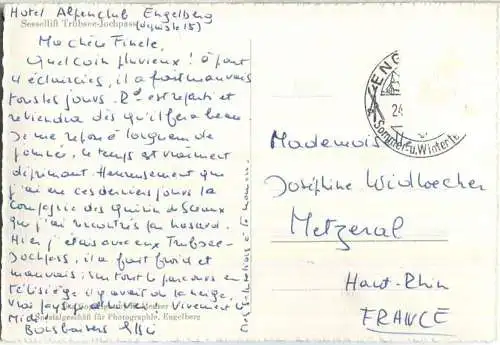 Hotel Alpenclub Engelberg
Sessellift Trübsee-Jochpass (depuis le 15)
Ma chère Finele,
Quel coin pluvieux ! à part
4 éclaircies, il a fait mauvais
tous les jours. Rd est reparti et
reviendra dès qu'il fera beau.
Je me repose à longueur de
journée, le temps est vraiment
déprimant. Heureusement que
j'ai eu ces derniers jours la
Compagnie des de Sceaux
que j'ai rencontrés par hasard.
Hier j'étais avec eux Trubsee-
Jochpass, il a fait froid et
mauvais : surtout le parcours en
télésiège, il y avait de la neige,
vrai paysage d'hiver. Vivement le
Midi
Spezialgeschäft für Photographie, Engelberg
Bons baisers
à ta maman.
ENG
24
Sommer- u. Winter
Mademois
Joséphine Widloecher
Metzeral
Haut-Rhin
FRANCE